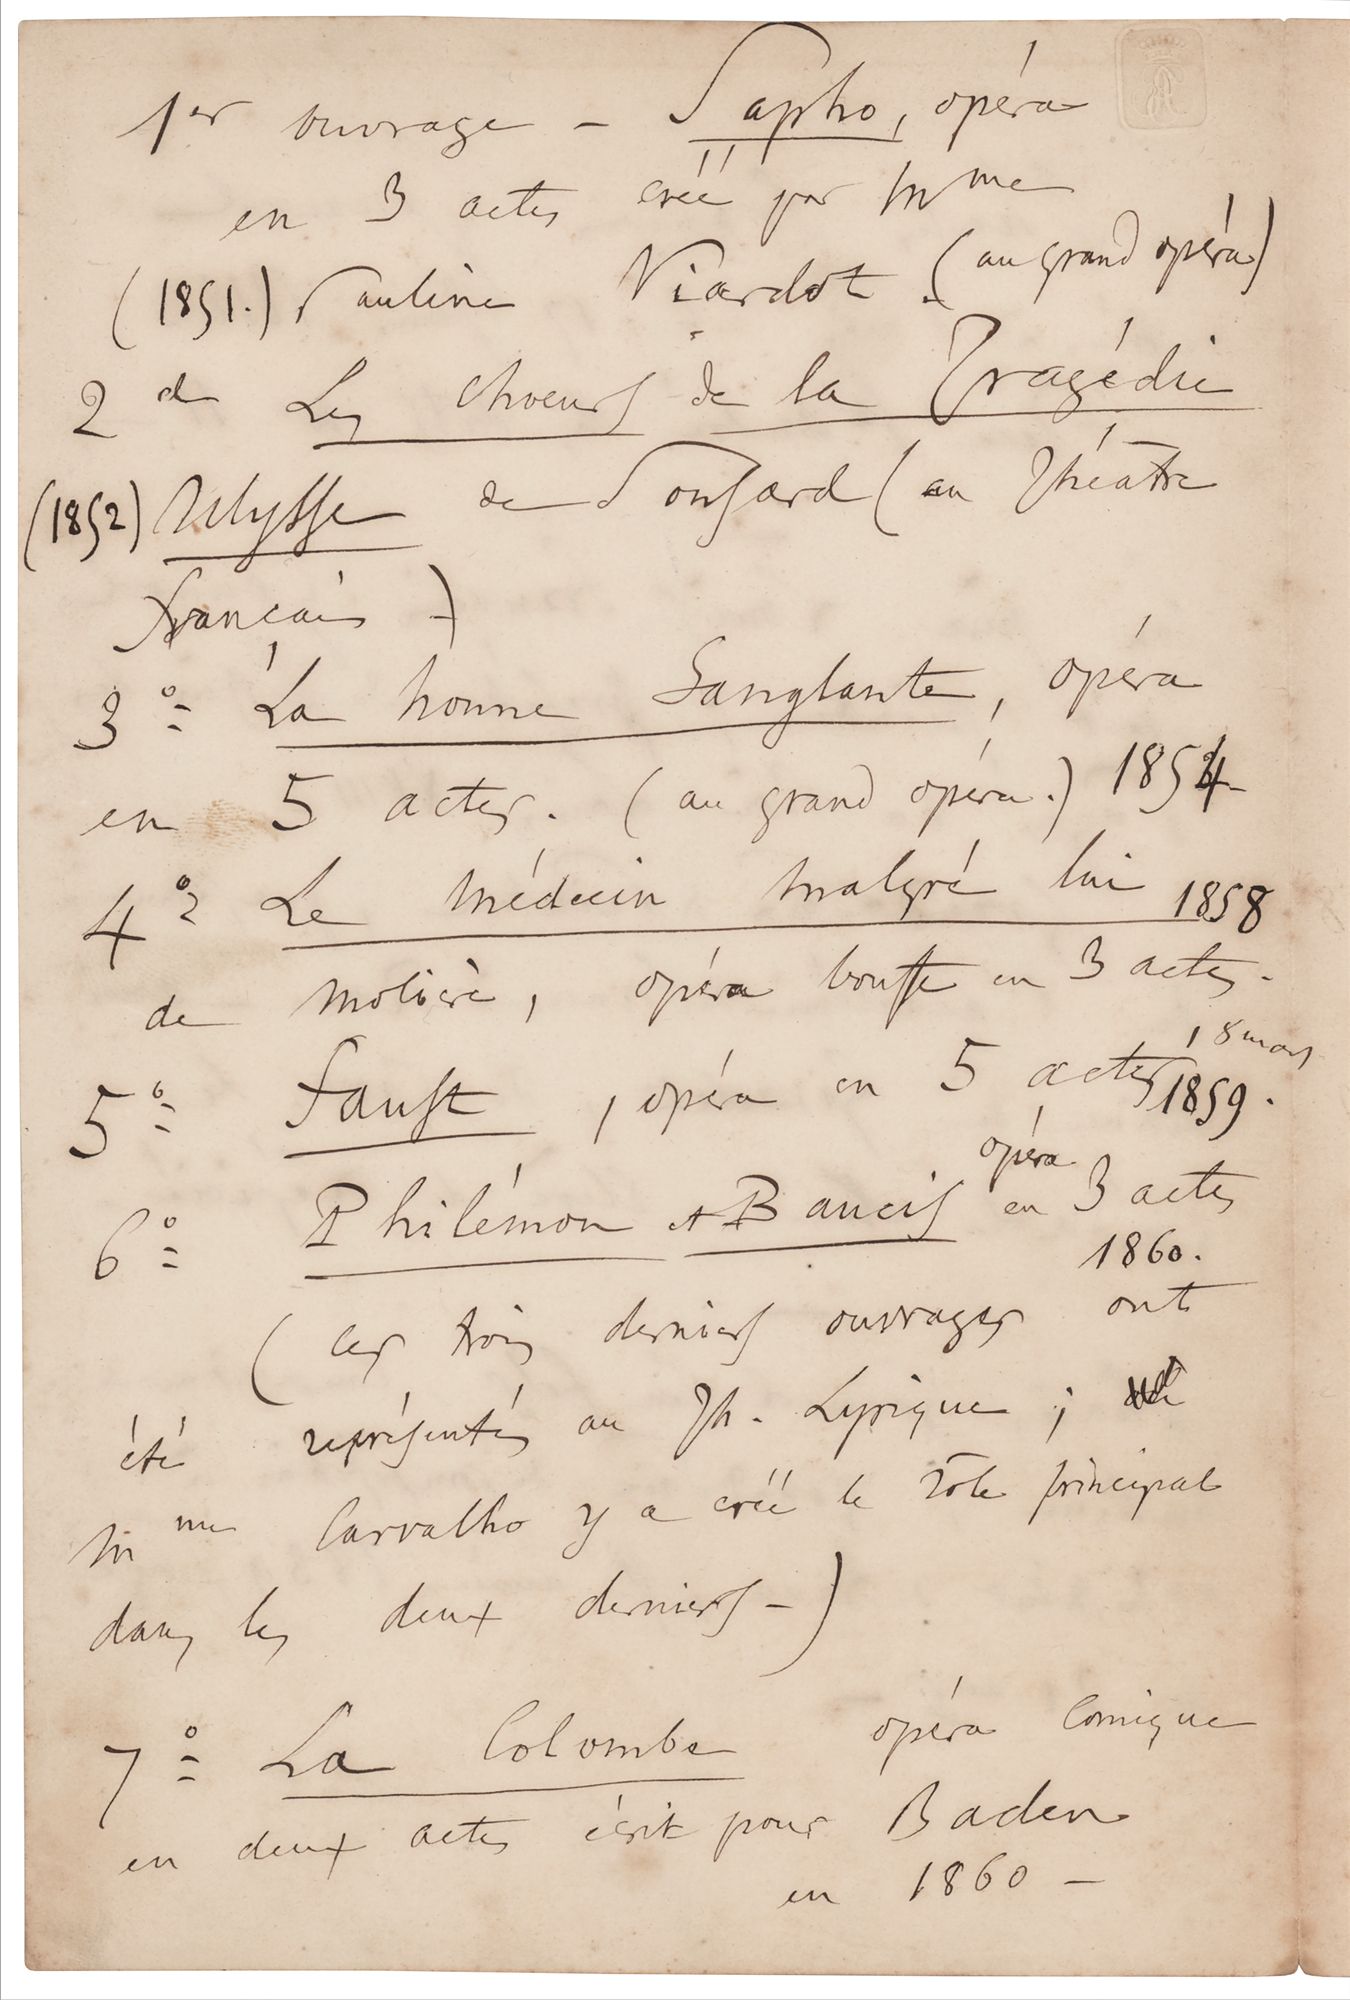 1er ouvrage – Sapho, opéra
en 3 actes créé par Mme
(1851.) Pauline Viardot. (au grand opéra)
2d Les Choeurs de la Tragédie
(1852) Ulysse de Ponsard (au Théâtre
français –)
3º La nonne Sanglante, opéra
en 5 actes. (au grand opéra.) 1854
4º Le Médecin malgré lui 1858
de Molière, opéra bouffe en 3 actes.
5º Faust, opéra en 5 actes 18 mars
1859.
6º Philémon et Baucis opéra en 3 actes
1860.
(ces trois derniers ouvrages ont
été représentés au Th. Lyrique ;
Mme Carvalho y a créé le rôle principal
dans les deux derniers –)
7º La Colombe opéra comique
en deux actes écrit pour Baden
en 1860 –